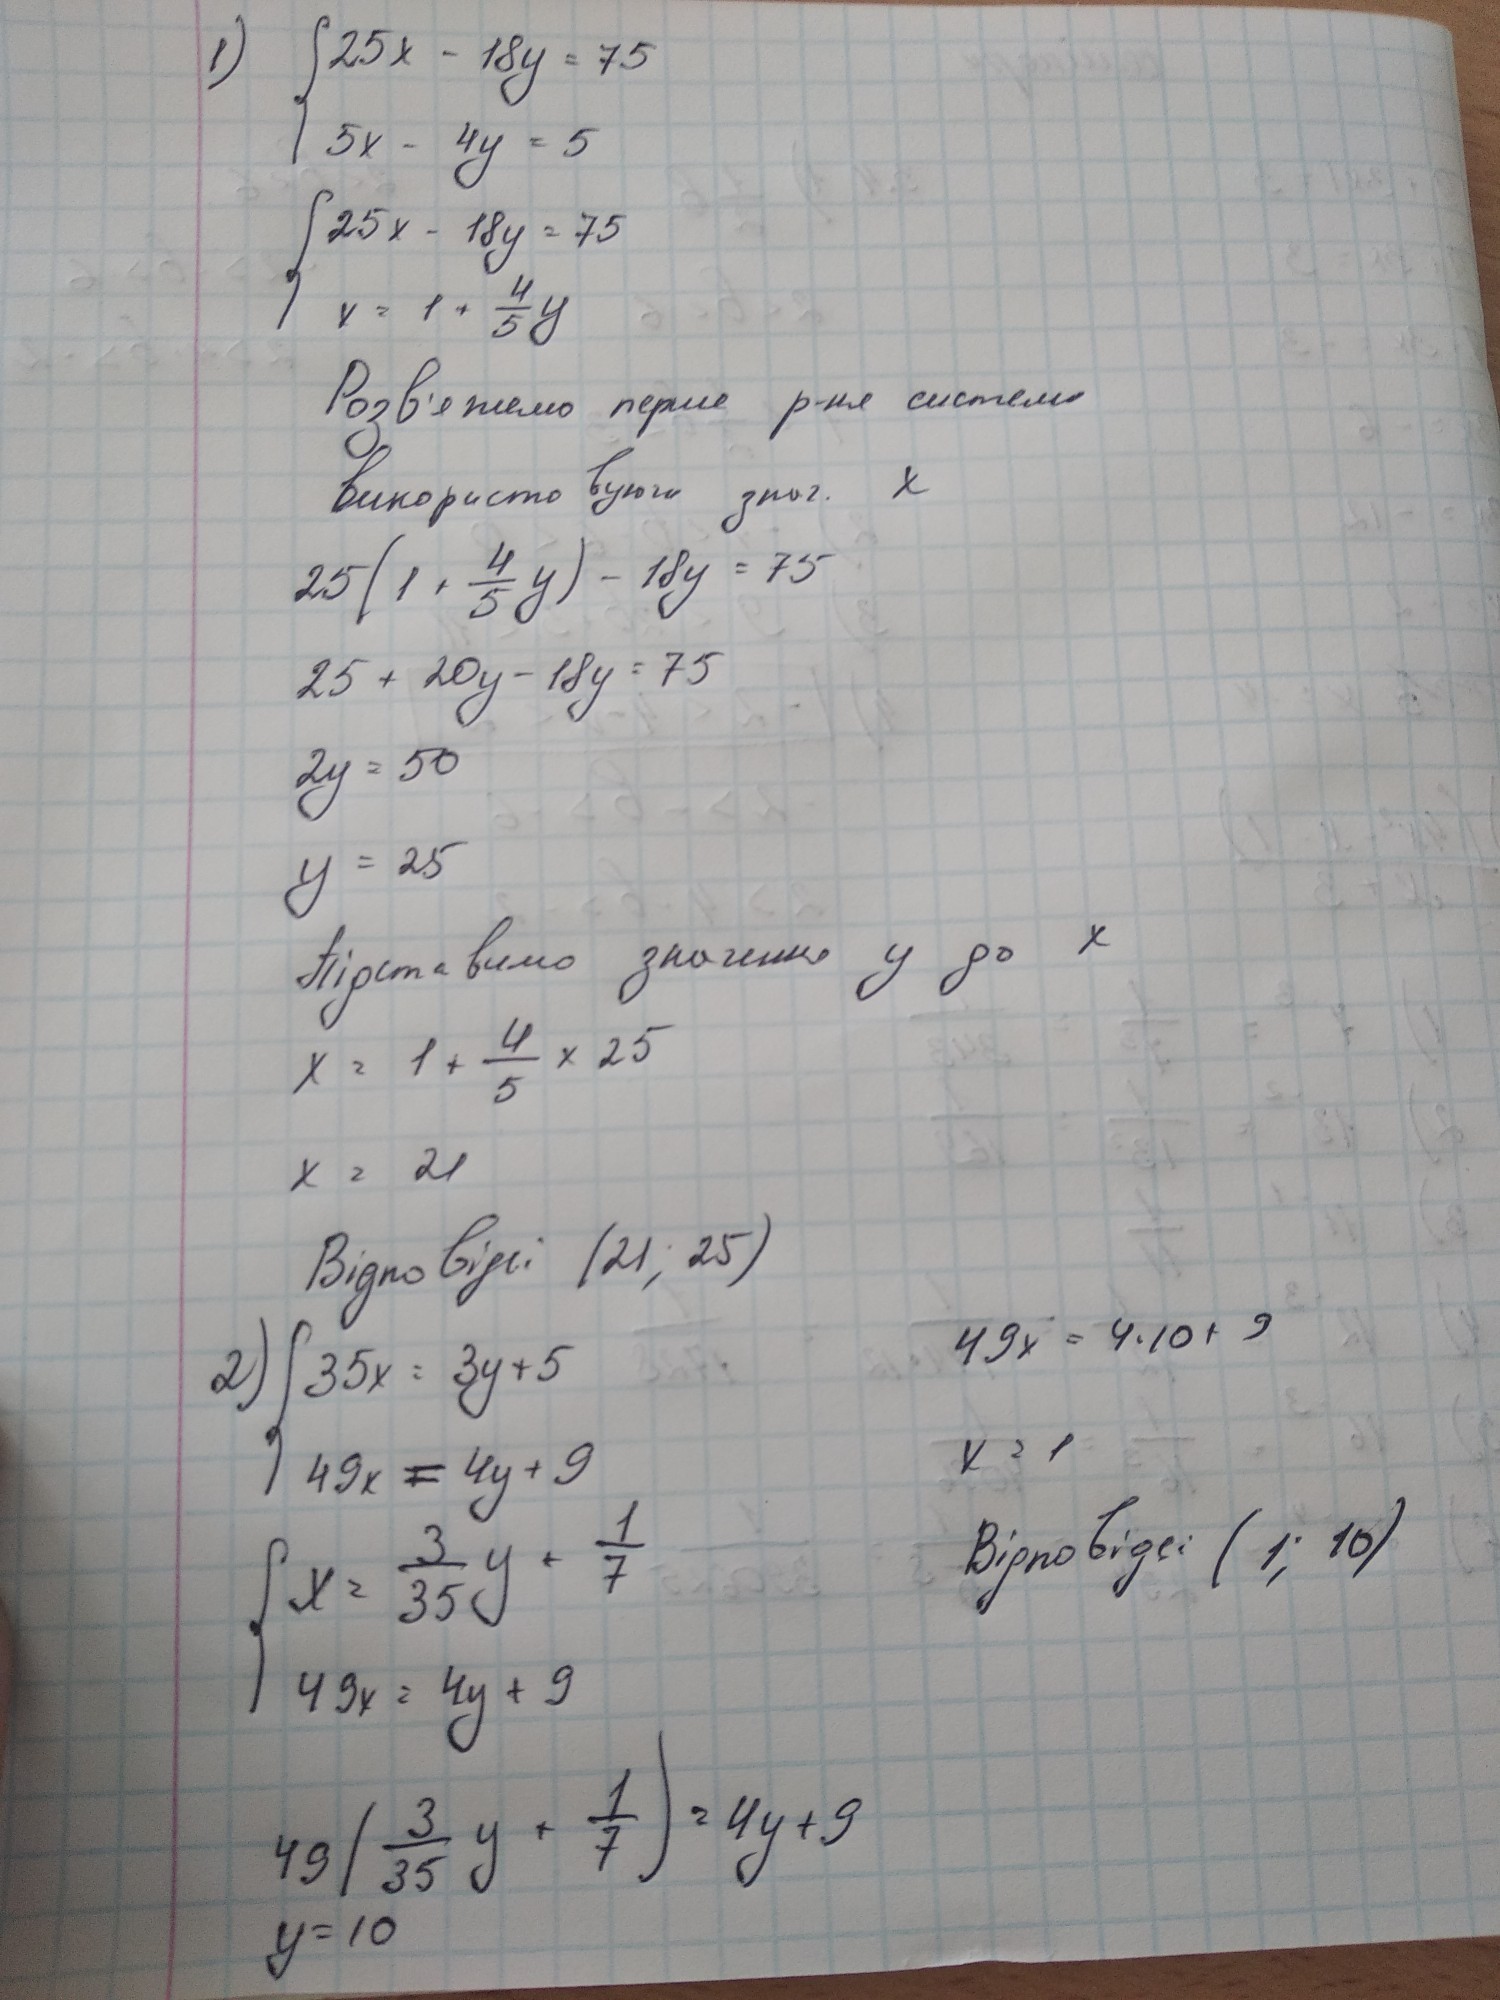 1) { 25x - 18y = 75
5x - 4y = 5
{ 25x - 18y = 75
x = 1 + 4/5 y
Розв'яжемо перше р-ня системи
використовуючи знач. x
25(1 + 4/5 y) - 18y = 75
25 + 20y - 18y = 75
2y = 50
y = 25
Підставимо значення y до x
x = 1 + 4/5 × 25
x = 21
Відповідь: (21; 25)
2) { 35x = 3y + 5
49x = 4y + 9
{ x = 3/35 y + 1/7
49x = 4y + 9
49(3/35 y + 1/7) = 4y + 9
y = 10
49x = 4·10 + 9
x = 1
Відповідь: (1; 10)